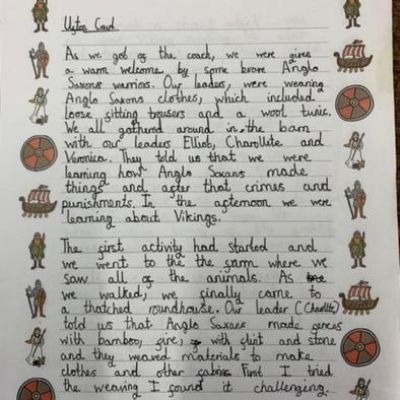 Ufton Court
As we got of the coach, we were given
a warm welcome by some brave Anglo
Saxons warriors. Our leaders, were wearing
Anglo Saxons clothes, which included
loose fitting trousers and a wool tunic.
We all gathered around in the barn
with our leaders Elliot, Charollete and
Veronica. They told us that we were
learning how Anglo Saxons made
things and after that crimes and
punishments. In the afternoon we were
learning about Vikings.
The first activity had started and
we went to the the farm where we
saw all of the animals. As
we walked, we finally came to
a thatched roundhouse. Our leader (Charollete)
told us that Anglo Saxons made fences
with bamboo, fire, with flint and stone
and they weaved materials to make
clothes and other fabics First I tried
the weaving I found it challenging.